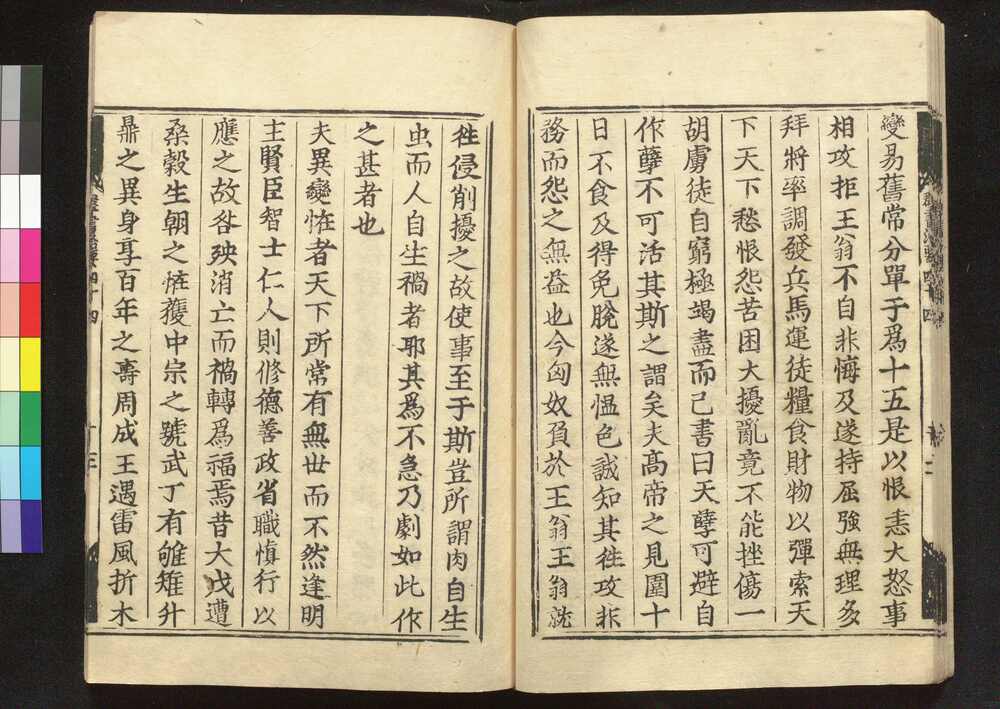 變易舊常分單于爲十五是以恨恚大怒事
相攻拒王翁不自非悔及遂持屈強無理多
拜將率調發兵馬運徒糧食財物以彈索天
下天下愁恨怨苦困大擾亂竟不能挫傷一
胡虜徒自窮極竭盡而已書曰天孽可避自
作孽不可活其斯之謂矣夫高帝之見圍十
日不食及得免脫遂無慍色誠知其往攻非
務而怨之無益也今匈奴負於王翁王翁就
往侵削擾之故使事至于斯豈所謂肉自生
虫而人自生禍者耶其爲不急乃劇如此作
之甚者也
夫異變恠者天下所常有無世而不然逢明
主賢臣智士仁人則修德善政省職愼行以
應之故咎殃消亡而禍轉爲福焉昔大戊遭
桑穀生朝之恠獲中宗之號武丁有雊雉升
鼎之異身享百年之壽周成王遇雷風折木
群書治要四十四
十二